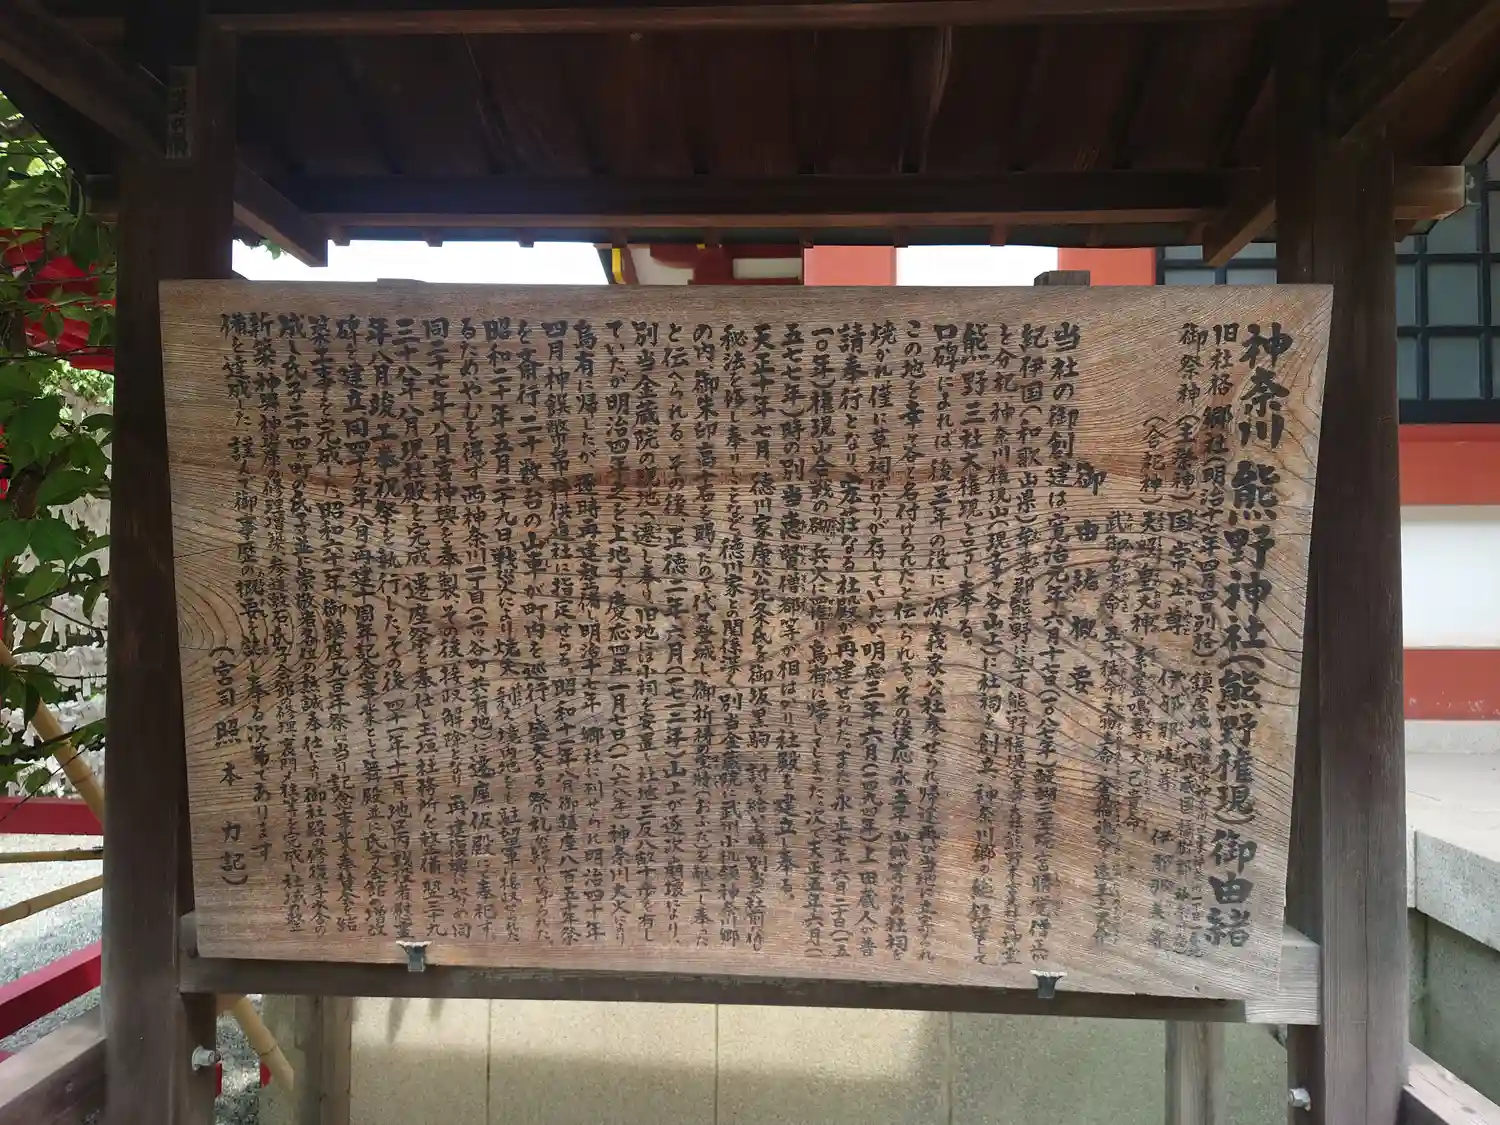 神奈川熊野神社(熊野権現)御由緒
旧社格 郷社(明治十七年四月四日列格)
御祭神 (主祭神)国常立尊 伊邪那岐尊 伊邪那美尊
(合祀神)天照皇大神 素盞嗚尊 大己貴命
御由緒概要
当社の御創建は、寛治元年六月十七日(一〇八七年)醍醐三宝院宮勝覚僧正が
紀伊国(和歌山県)牟婁郡熊野に坐す熊野権現の神霊
を分祀、神奈川権現山(現幸ヶ谷山上)に社祠を創立、神奈川郷の総鎮守として
熊野三社大権現と号し奉る。
口碑によれば、後三年の役に源の義家公社参せられ帰途再び当地に立寄られ
この地を幸ヶ谷と名付けられたと伝られる。その後応永五年山賊等のため社祠を
焼かれ僅に草祠ばかりが存していたが明応三年六月(一四九四年)上田蔵人が普
請奉行となり、宏壮なる社殿が再建せられた。また永正七年六月二十日(一五
一〇年)権現山合戦の砌、兵火に罹り烏有に帰してしまった。次で天正五年六月(一
五七七年)時の別当恵賢僧都等が相はかり社殿を建立し奉る。
天正十年七月、徳川家康公北条氏と御坂黒駒に対陣の時別当社前に
秘法を修し奉りしことなど、徳川家との関係深く別当金蔵院に武州小机領神奈川郷
の内御朱印高十石を賜ったので代々登城し御祈祷の宝牘(おふだ)を献上し奉った
と伝へられる。その後、正徳二年六月(一七一二年)山上が逐次崩壊により、
別当金蔵院の現地へ遷し奉り旧地には小祠を安置し社地三反八畝十歩を有し
ていたが明治四年之を上地す。慶応四年一月七日(一八六八年)神奈川大火により
烏有に帰したが、逐時再建整備し、明治十七年、郷社に列せられ明治四十年
四月神饌幣帛料供進社に指定せらる。昭和十一年八月御鎮座八百五十年祭
を斎行、二十数台の山車が町内を巡行し盛大なる祭礼が執り行われた。
昭和二十年五月二十九日戦災により焼失、剰え境内地をも駐留軍に接収された
るためやむを得ず西神奈川一丁目(二ッ谷町共有地)に遷座仮殿に奉祀す。
同二十七年八月宮神輿を奉製その後接収解除となり、再建復興に努め同
三十八年八月現社殿を完成、遷座祭を奉仕し玉垣社務所を設備翌三十九
年八月竣工奉祝祭を執行した。その後四十一年十一月地区内戦没者慰霊
碑を建立同四十九年八月再建十周年記念事業として舞殿並に氏子会館の増改
築工事を完成した。昭和六十年、御鎮座九百年祭に当り記念事業奉賛会を結
成し氏子二十四ヶ町の氏子並に崇敬者各位の熱誠奉仕により御社殿の修復手水舎の
新築、神輿神庫の修理増築、参道敷石氏子会館の修理、裏門々移築等を完成し社頭整
備を達成した 謹んで御事歴の概要を誌し奉る次第であります
(宮司 照本 力記)